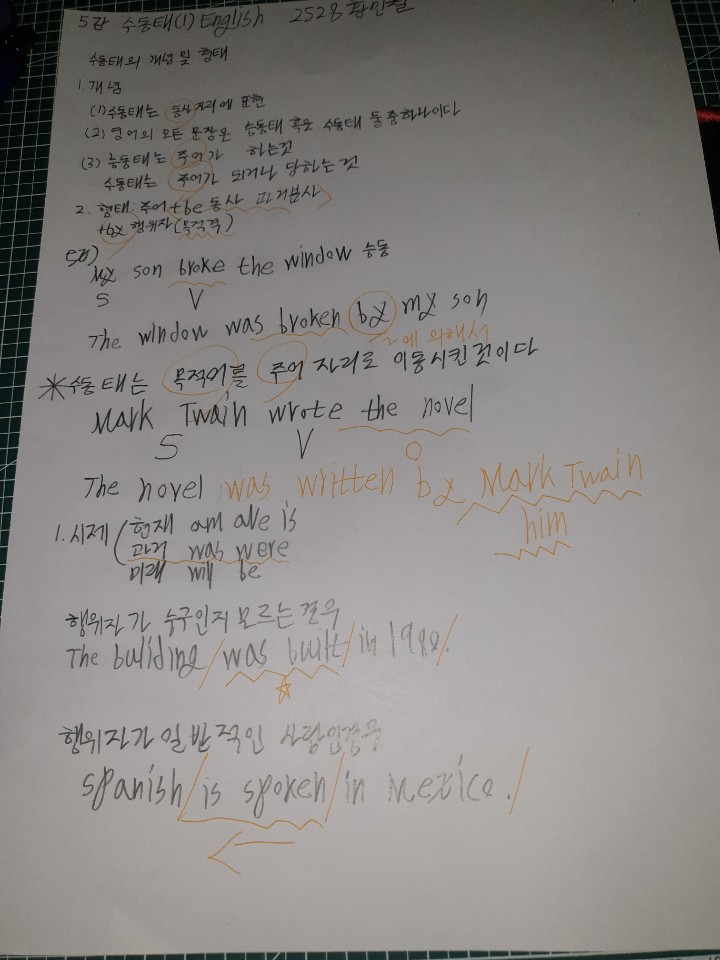 5강 수동태(1) English 2528 황인철
수동태의 개념 및 형태
1 개념
(1) 수동태는 동사자리에 표현
(2) 영어의 모든 문장은 능동태 혹은 수동태 둘중하나이다
(3) 능동태는 주어가 하는것
수동태는 주어가 되거나 당하는 것
2. 형태: 주어+be동사 과거분사
+by 행위자(목적격)
ex)
My son broke the window 능동
S V
The window was broken by my son
~에 의해서
*수동태는 목적어를 주어 자리로 이동시킨것이다
Mark Twain wrote the novel
S V O
The novel was written by Mark Twain
him
1. 시제 (현재 am are is
과거 was were
미래 will be
행위자가 누구인지 모르는경우
The buliding/was built/in 1980/.
행위자가 일반적인 사람인경우
Spanish/is spoken/in Mexico./